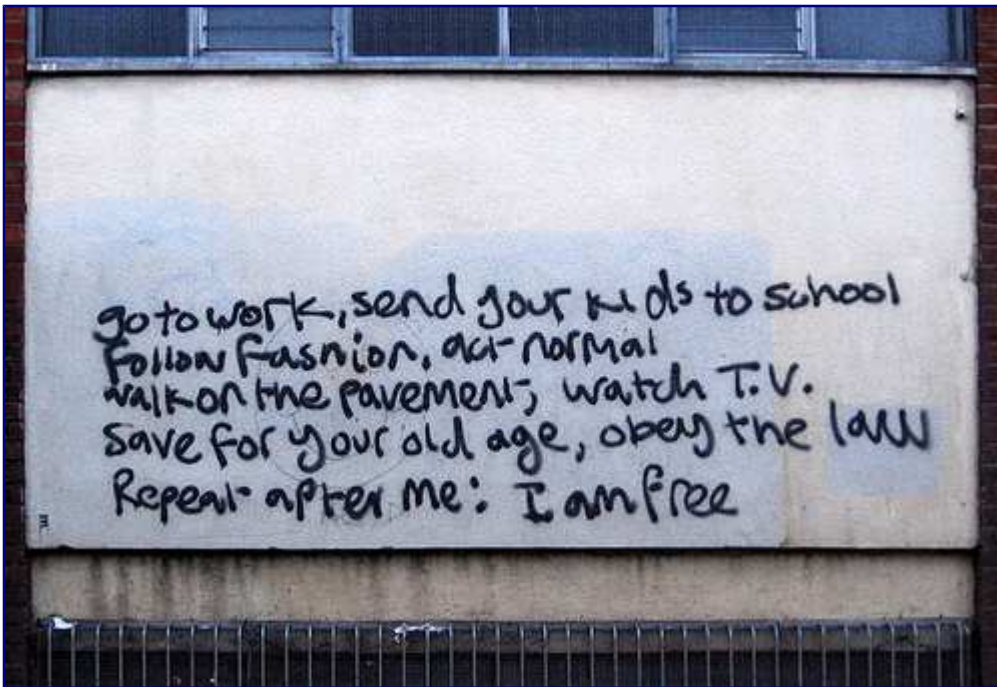 go to work, send your kids to school
Follow fashion, act normal
walk on the pavement, watch T.V.
save for your old age, obey the law
Repeat after me: I am free